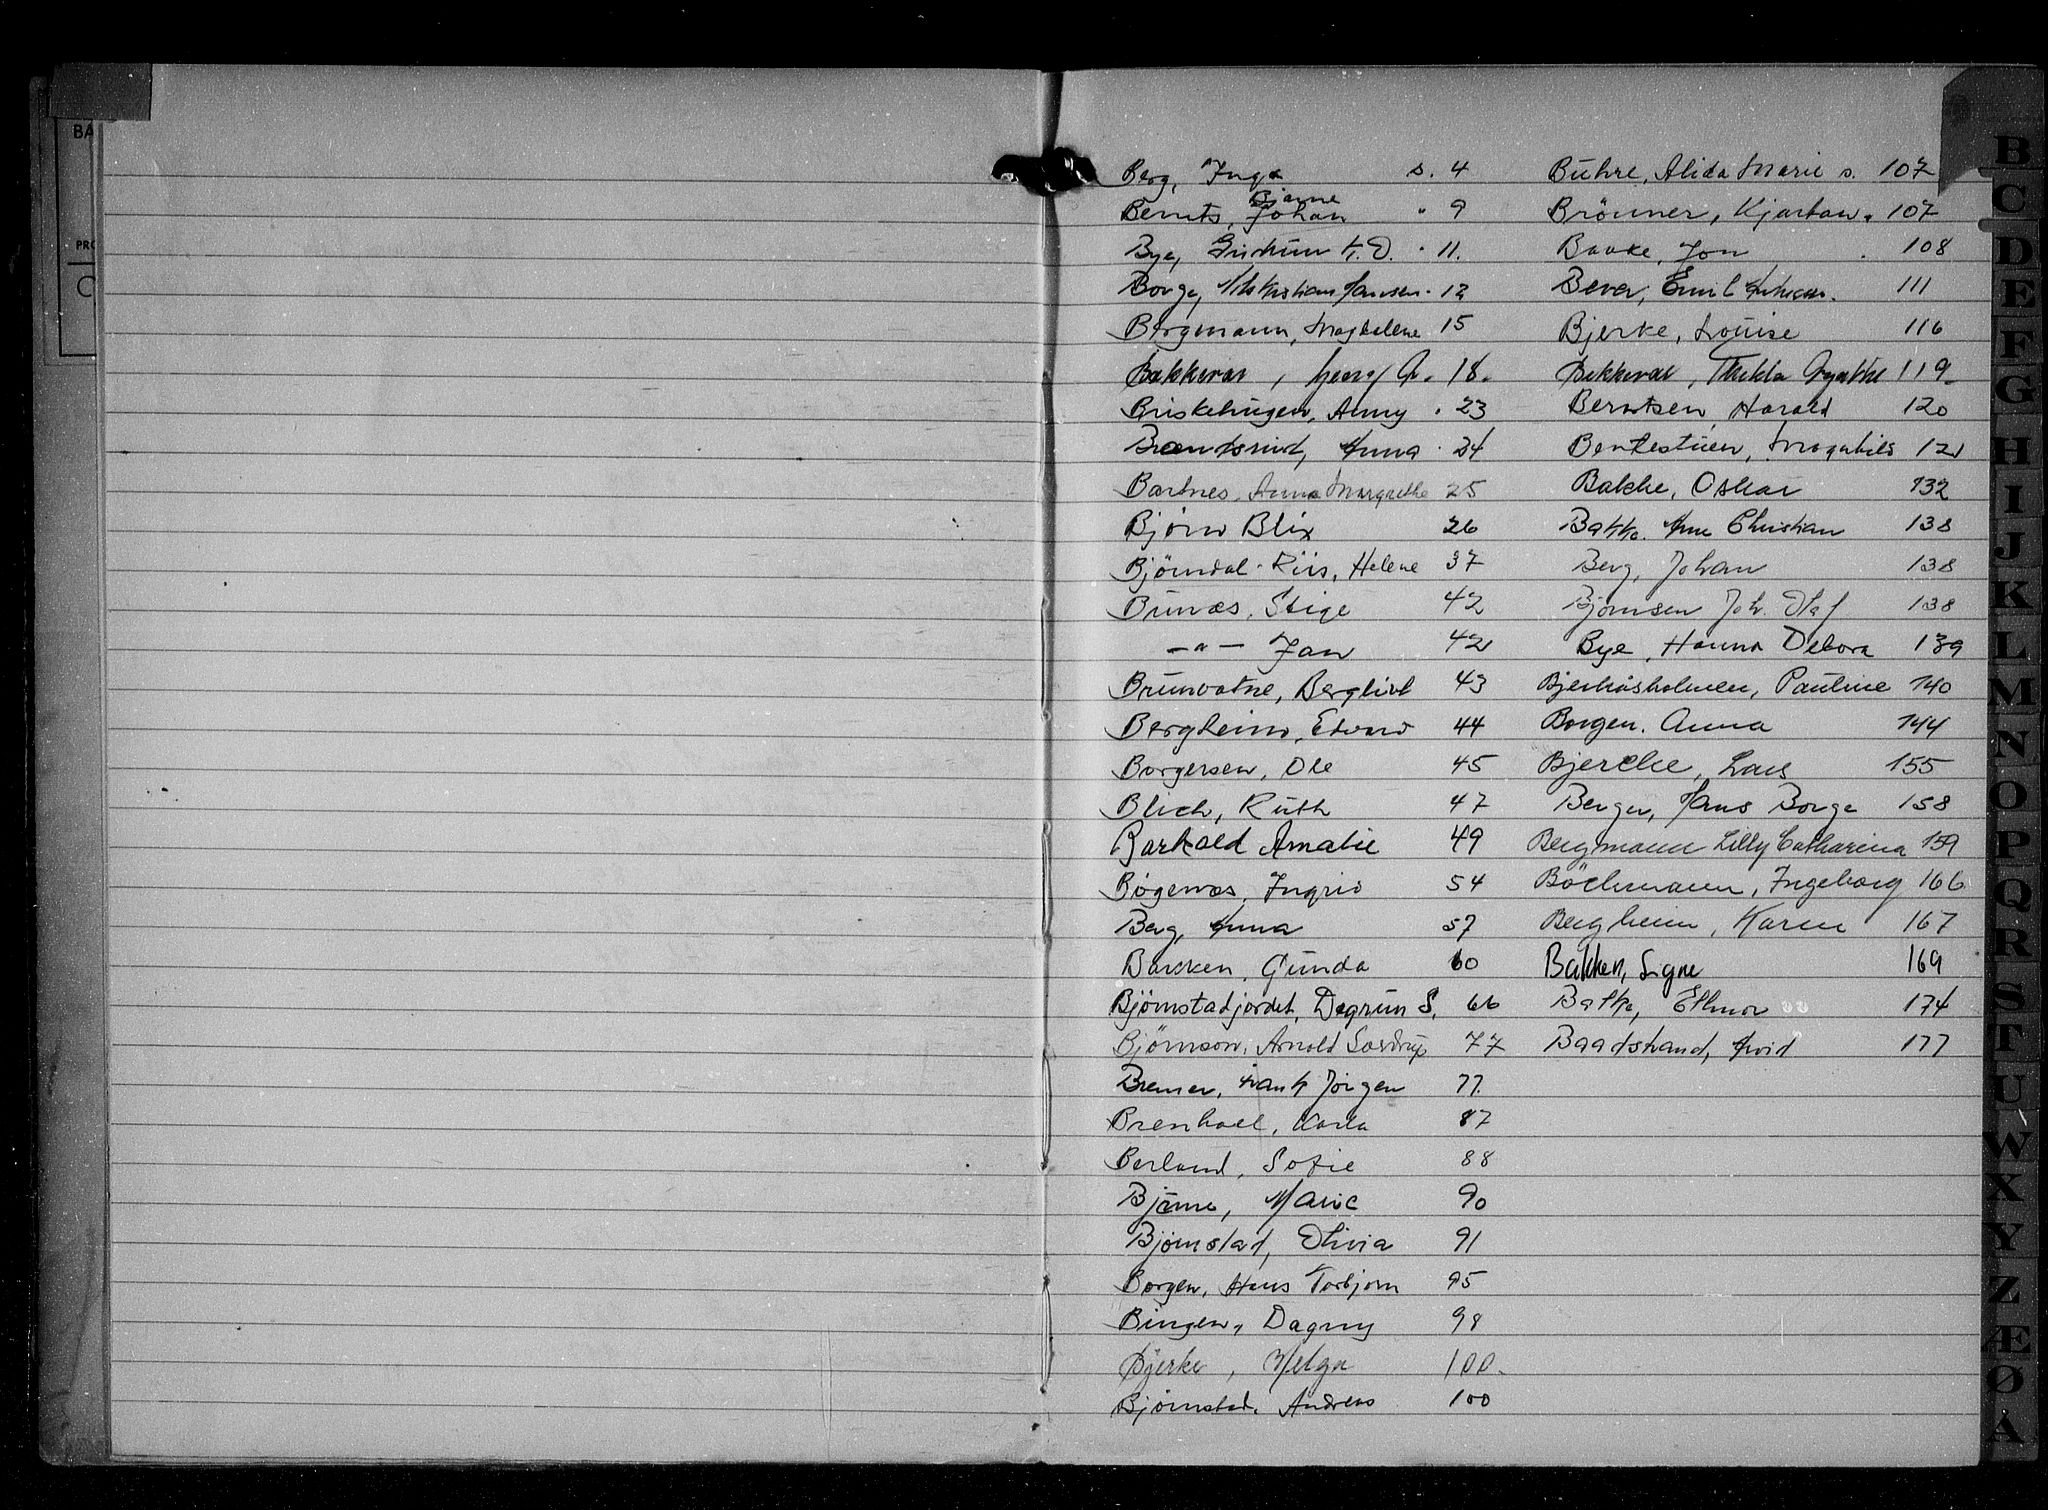 BA
PRO
C
Berg, Inga s. 4
Bjarne
Bernts, Johan " 9
Bye, Gudrun K. D. " 11.
Borge, Nils Kristian Hansen " 12
Bergmann, Magdalene 15
Bakkevar, Georg " 18.
Briskelingen, Anny " 23
Brendsrud, Anna " 24
Bartnes, Anna Margrethe 25
Bjørn Blix 26
Bjørndal-Riis, Helene 37
Bunæs, Stige 42
—"— Jan 42
Brunvatne, Bergliot 43
Bergheim, Edvard 44
Borgersen, Ole 45
Blich, Ruth 47
Barkald Amalie 49
Bøgenæs, Ingrid 54
Berg, Anna 57
Barken, Gunda 60
Bjørnstadjordet, Dagrun S. 66
Bjørnson, Arnold Sverdrup 77
Bremer, Frank Jörgen 77.
Brenhoel, Karla 87
Berland, Sofie 88
Marie 90
Bjørnstad, Olivia 91
Borgen, Hans Torbjørn 95
Bingen, Dagny 98
Bjerke, Helga 100.
Bjørnstad, Andreas 100
Buhre, Alida Marie s. 107
Brönner, Kjartan " 107
Baake, Jon " 108
Bever, Emil Johan. 111
Bjerke, Louise 116
Bekkevar, Thekla Agathe 119.
Berntsen, Harald 120
Bentestuen, Magnhild 121
Bakke, Oskar 132
Bakke, Arne Christian 138
Berg, Johan 138
Bjørnsen Joh. Olaf 138
Bye, Hanna Debora 139
Bjerkåsholmen, Pauline 140
Borgen, Anna 144
Bjercke, Lars 155
Berger, Hans Borge 158
Bergmann Lilly Catharina 159
Böckmann, Ingeborg 166
Bergheim, Karen 167
Bakken, Signe 169
Bakke, Ellinor 174
Baadstrand, Arvid 177
B
C
D
E
F
G
H
I
J
K
L
M
N
O
P
Q
R
S
T
U
W
X
Y
Z
Æ
Ø
A